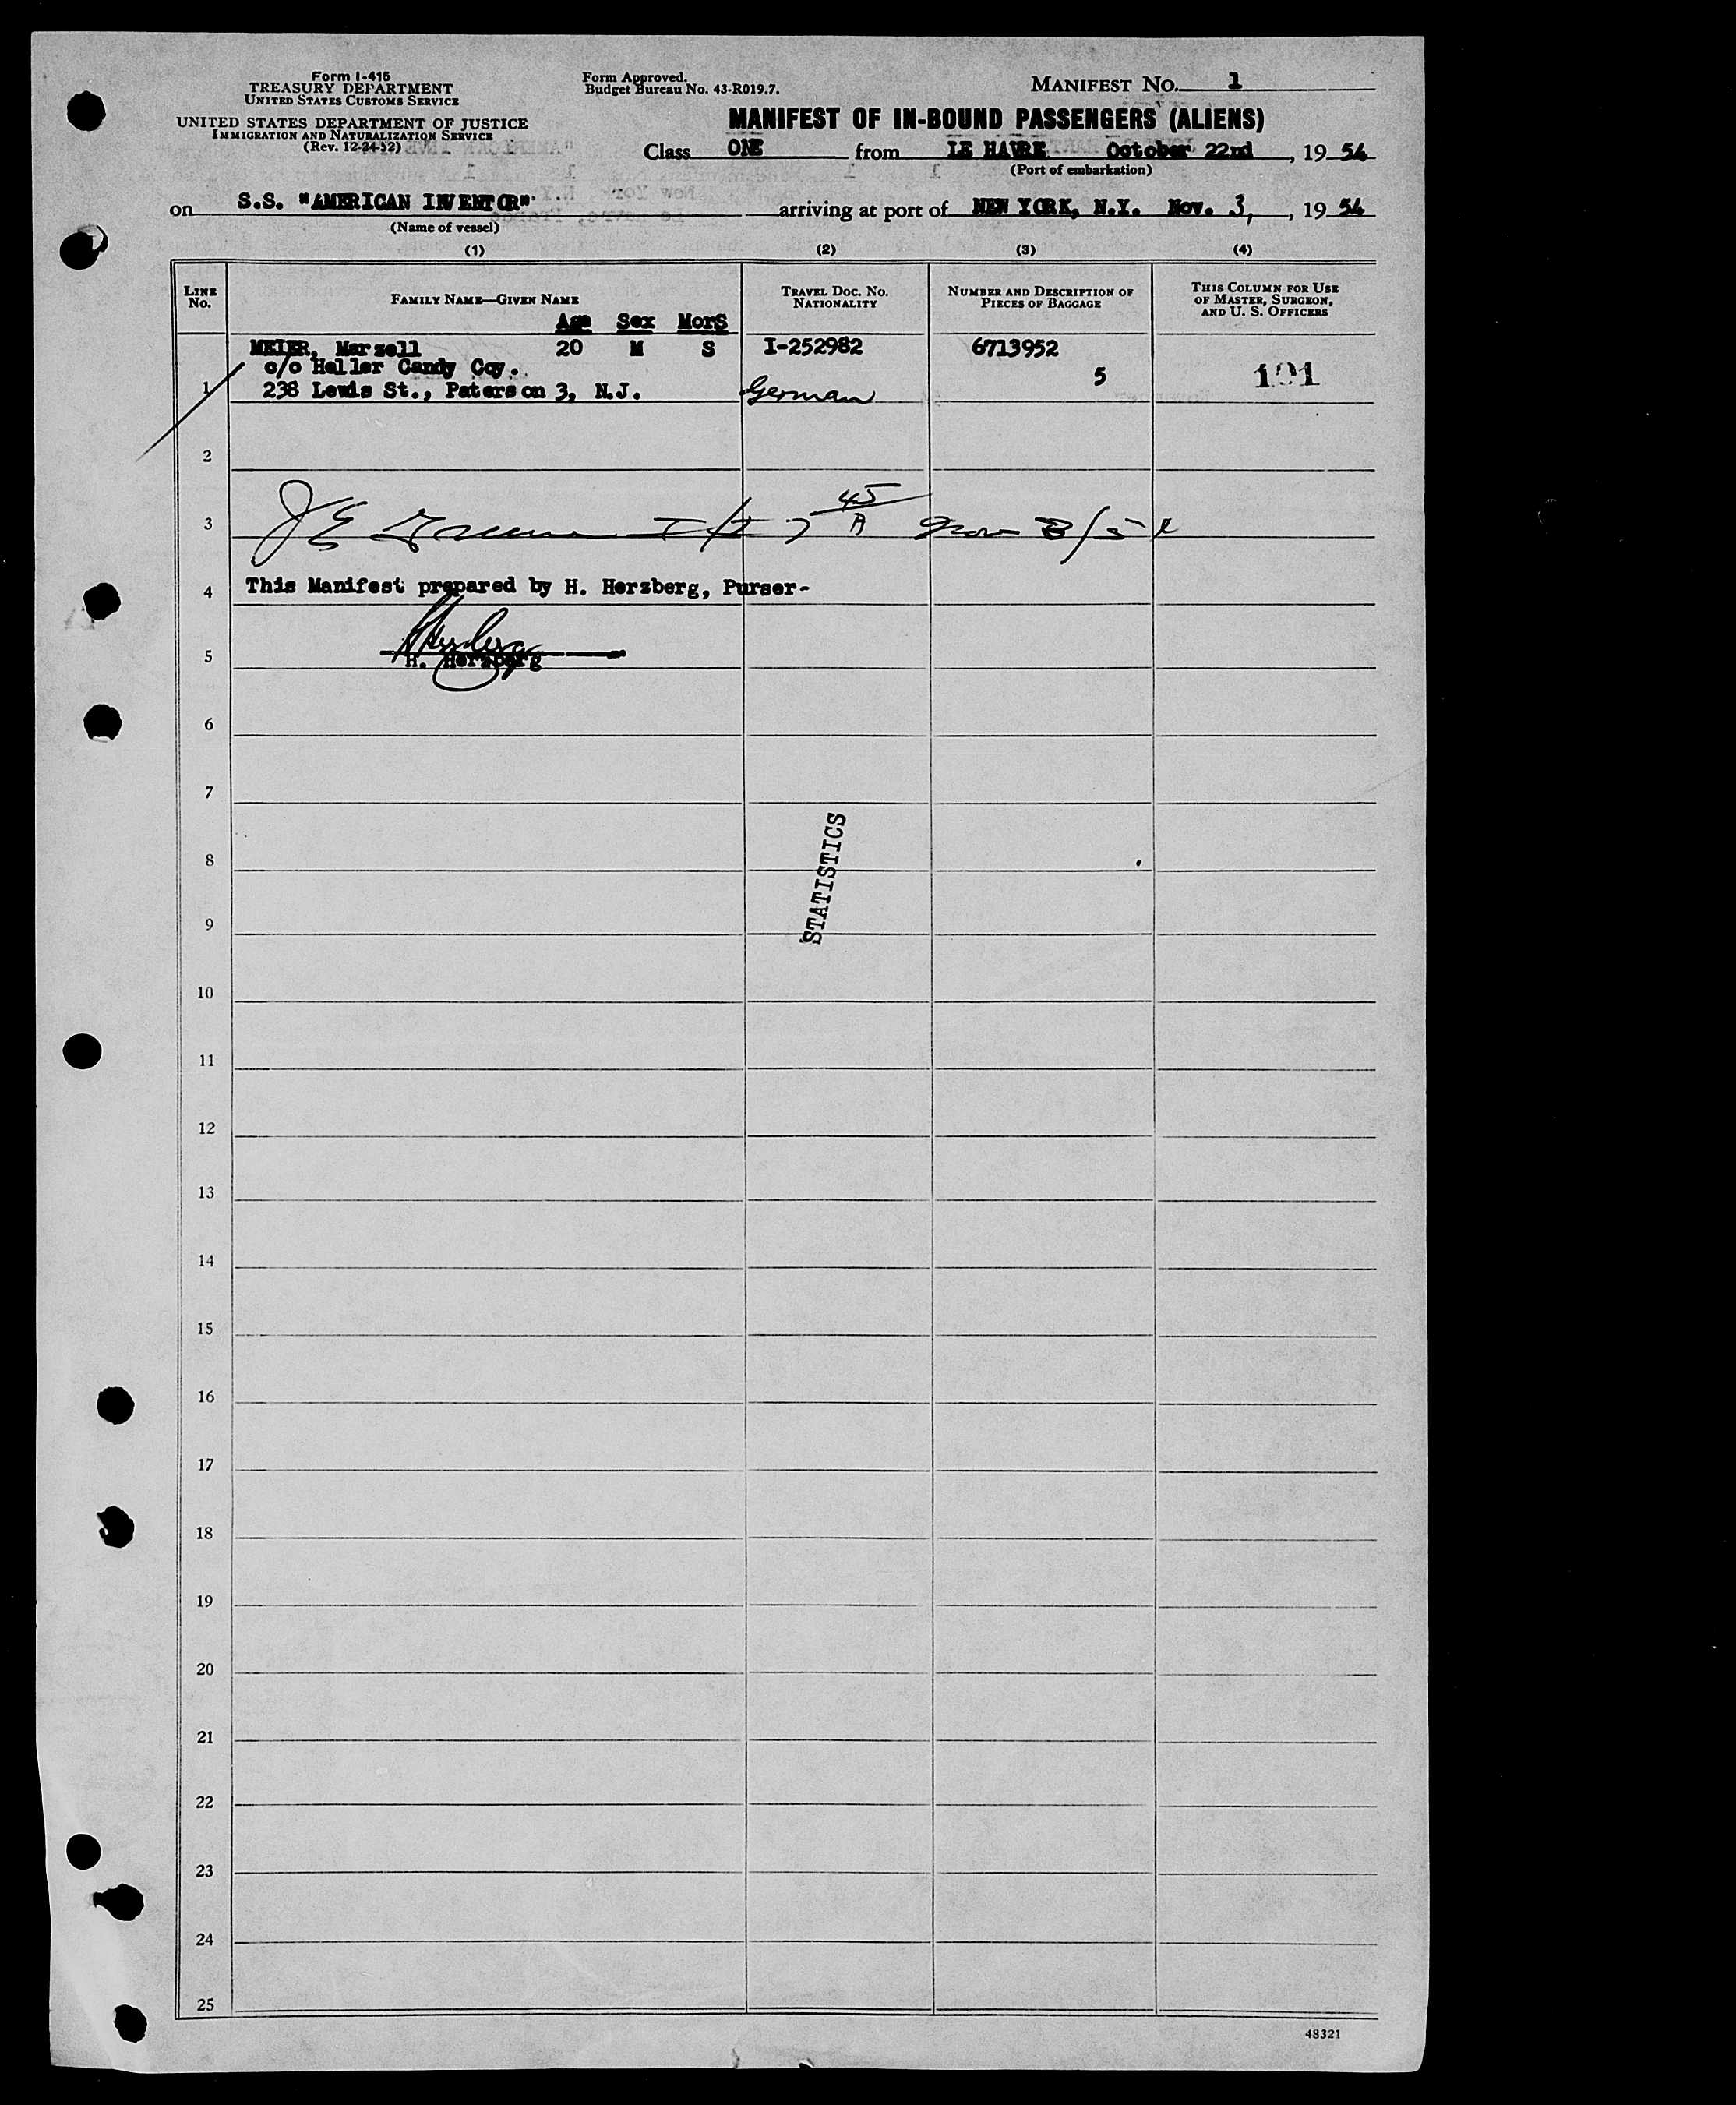 Form I-415
TREASURY DEPARTMENT
UNITED STATES CUSTOMS SERVICE
UNITED STATES DEPARTMENT OF JUSTICE
IMMIGRATION AND NATURALIZATION SERVICE
(Rev. 12-24-52)
Form Approved.
Budget Bureau No. 43-R019.7.
MANIFEST NO. 1
MANIFEST OF IN-BOUND PASSENGERS (ALIENS)
Class ONE from LE HAVRE October 22nd, 19 54
(Port of embarkation)
on S.S. "AMERICAN INVENTOR" arriving at port of NEW YORK, N.Y. Nov. 3, , 19 54
(Name of vessel)
(1) (2) (3) (4)
LINE No. FAMILY NAME—GIVEN NAME TRAVEL DOC. NO. NATIONALITY NUMBER AND DESCRIPTION OF PIECES OF BAGGAGE THIS COLUMN FOR USE OF MASTER, SURGEON, AND U. S. OFFICERS
Age Sex MorS
MEIER, Marzell 20 M S I-252982 6713952
c/o Heller Candy Coy. 5 101
1 238 Lewis St., Paterson 3, N.J. German
2
45
3 Nov 3/54
A
4 This Manifest prepared by H. Herzberg, Purser-
HHerzberg
5 H. Herzberg
6
7
STATISTICS
8
9
10
11
12
13
14
15
16
17
18
19
20
21
22
23
24
25
48321